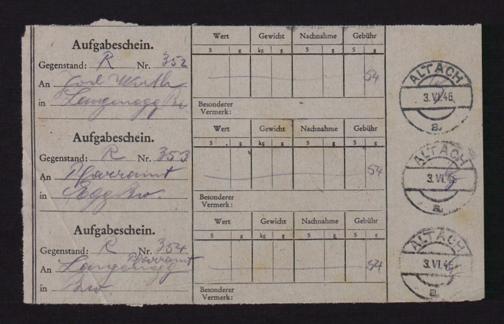 Aufgabeschein.
Wert Gewicht Nachnahme Gebühr
S g kg g S g S g
Gegenstand: R Nr. 352
54
An
in Langenegg
Besonderer
Vermerk:
ALTACH
3.VI.46
a
Aufgabeschein.
Wert Gewicht Nachnahme Gebühr
S g kg g S g S g
Gegenstand: R Nr. 353
54
An Pfarramt
in Egg
Besonderer
Vermerk:
ALTACH
3.VI.46
a
Aufgabeschein.
Wert Gewicht Nachnahme Gebühr
S g kg g S g S g
Gegenstand: R Nr. 354
54
Pfarramt
An Langenegg
in
Besonderer
Vermerk:
ALTACH
3.VI.46
a